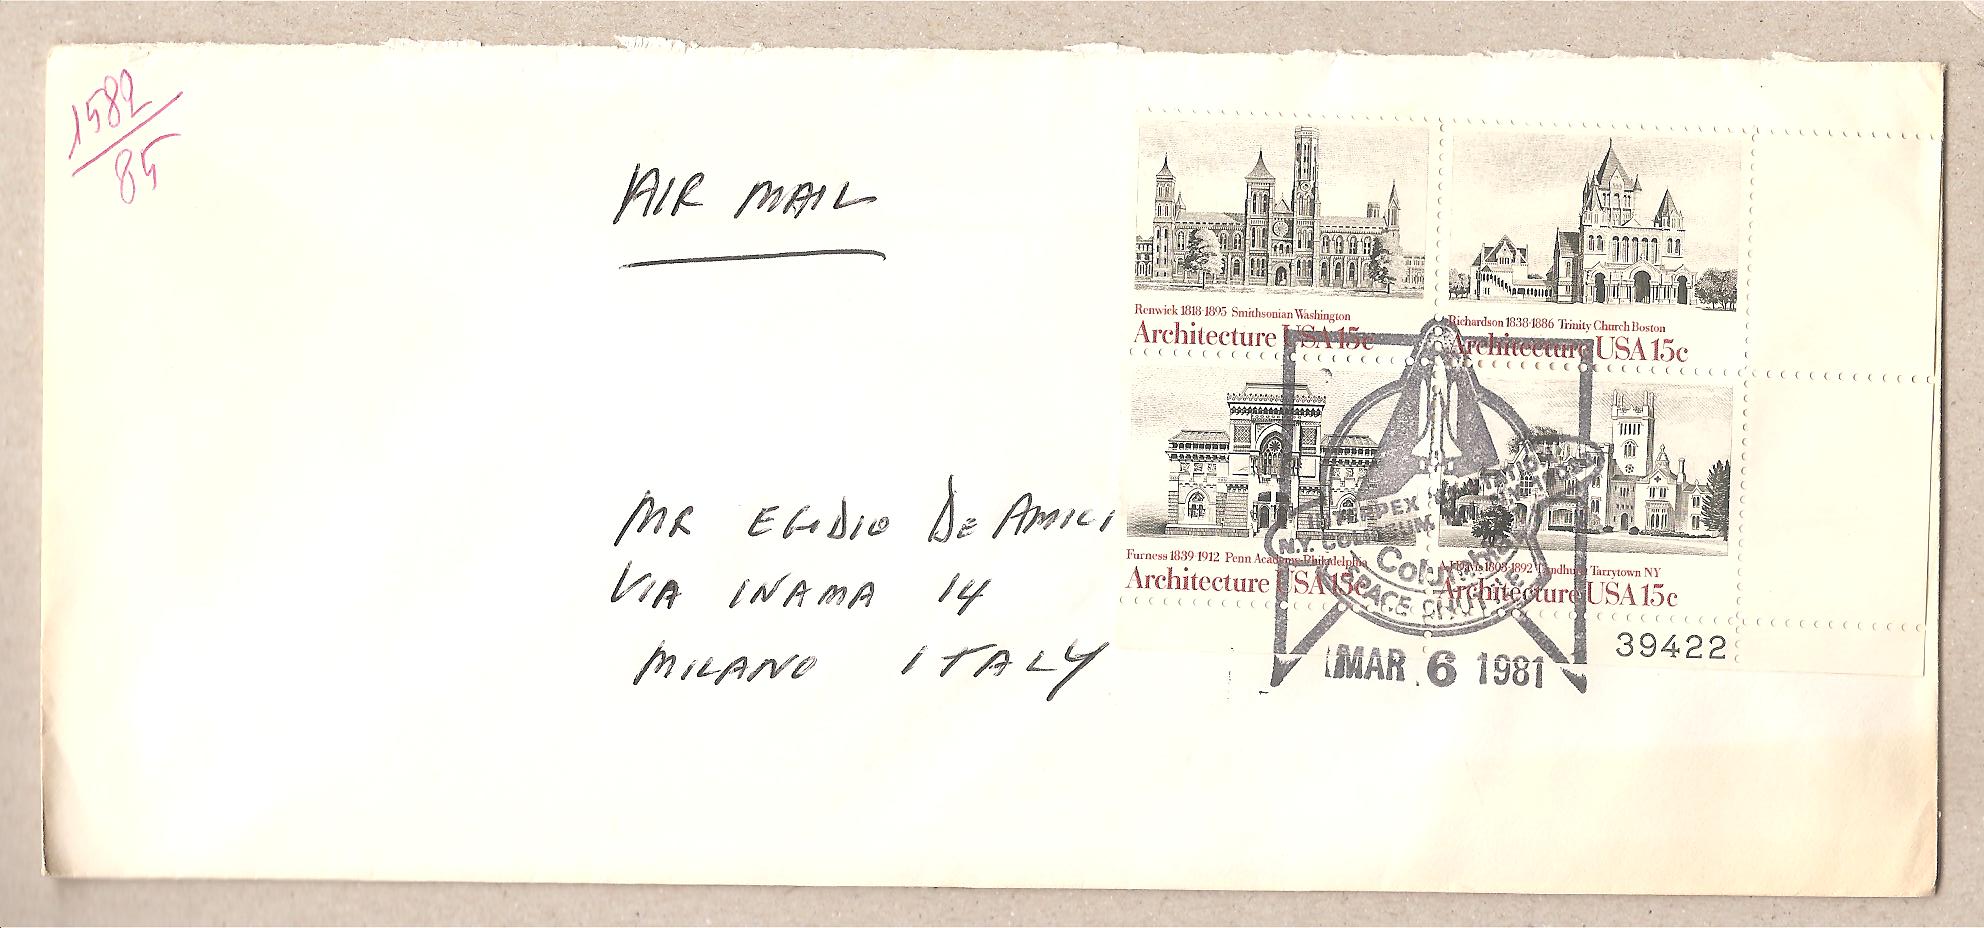 1582
85
AIR MAIL
MR EGIDIO DE AMICI
VIA INAMA 14
MILANO ITALY
Renwick 1818-1895 Smithsonian Washington
Architecture USA 15c
Richardson 1838-1886 Trinity Church Boston
Architecture USA 15c
Furness 1839-1912 Penn Academy Philadelphia
Architecture USA 15c
AJ Davis 1803-1892 Lyndhurst Tarrytown NY
Architecture USA 15c
39422
INTERPEX STATION
N.Y. COLISEUM
Columbia
SPACE SHUTTLE
MAR 6 1981